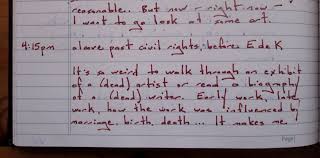 reasonable.. But now - right now -
I want to go look at some art.
4:15pm alove past civil rights, before E de K
It's so weird to walk through an exhibit
of a (dead) artist or read a biography
of a (dead) writer. Early work, late
work, how the work was influenced by
marriage, birth, death... It makes me
Page